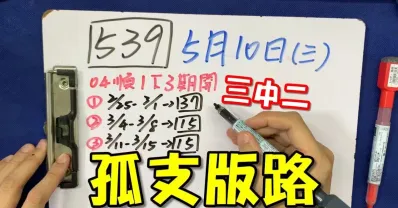 539 5月10日(三)
04順1 1 3期開
三中二
① 2/25 - 3/1 → 37
② 3/4 - 3/8 → 15
③ 3/11 - 3/15 → 15
孤支版路